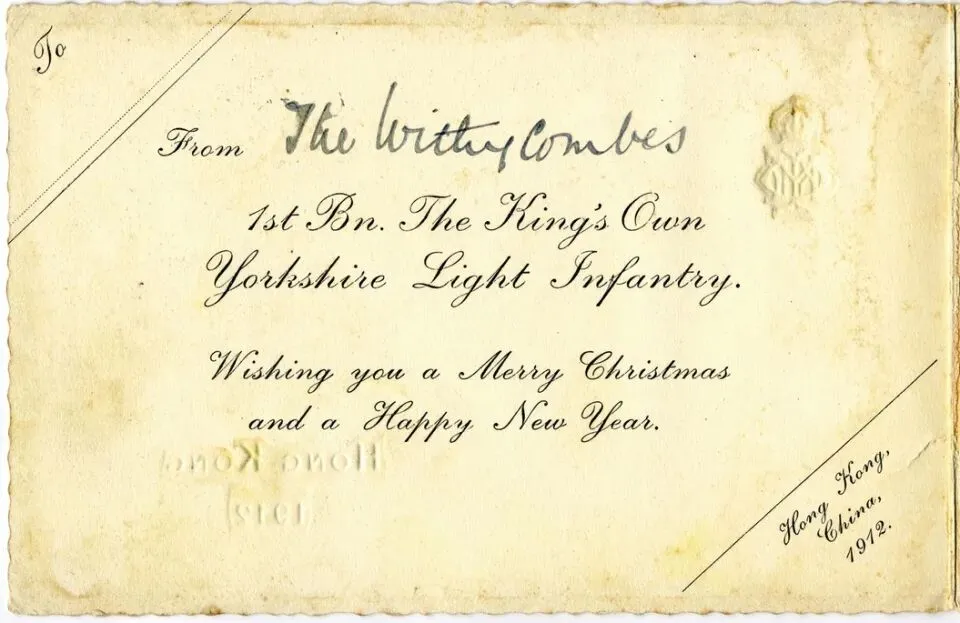 To
From The Withycombes
1st Bn. The King's Own
Yorkshire Light Infantry.
Wishing you a Merry Christmas
and a Happy New Year.
Hong Kong
1912
Hong Kong,
China,
1912.